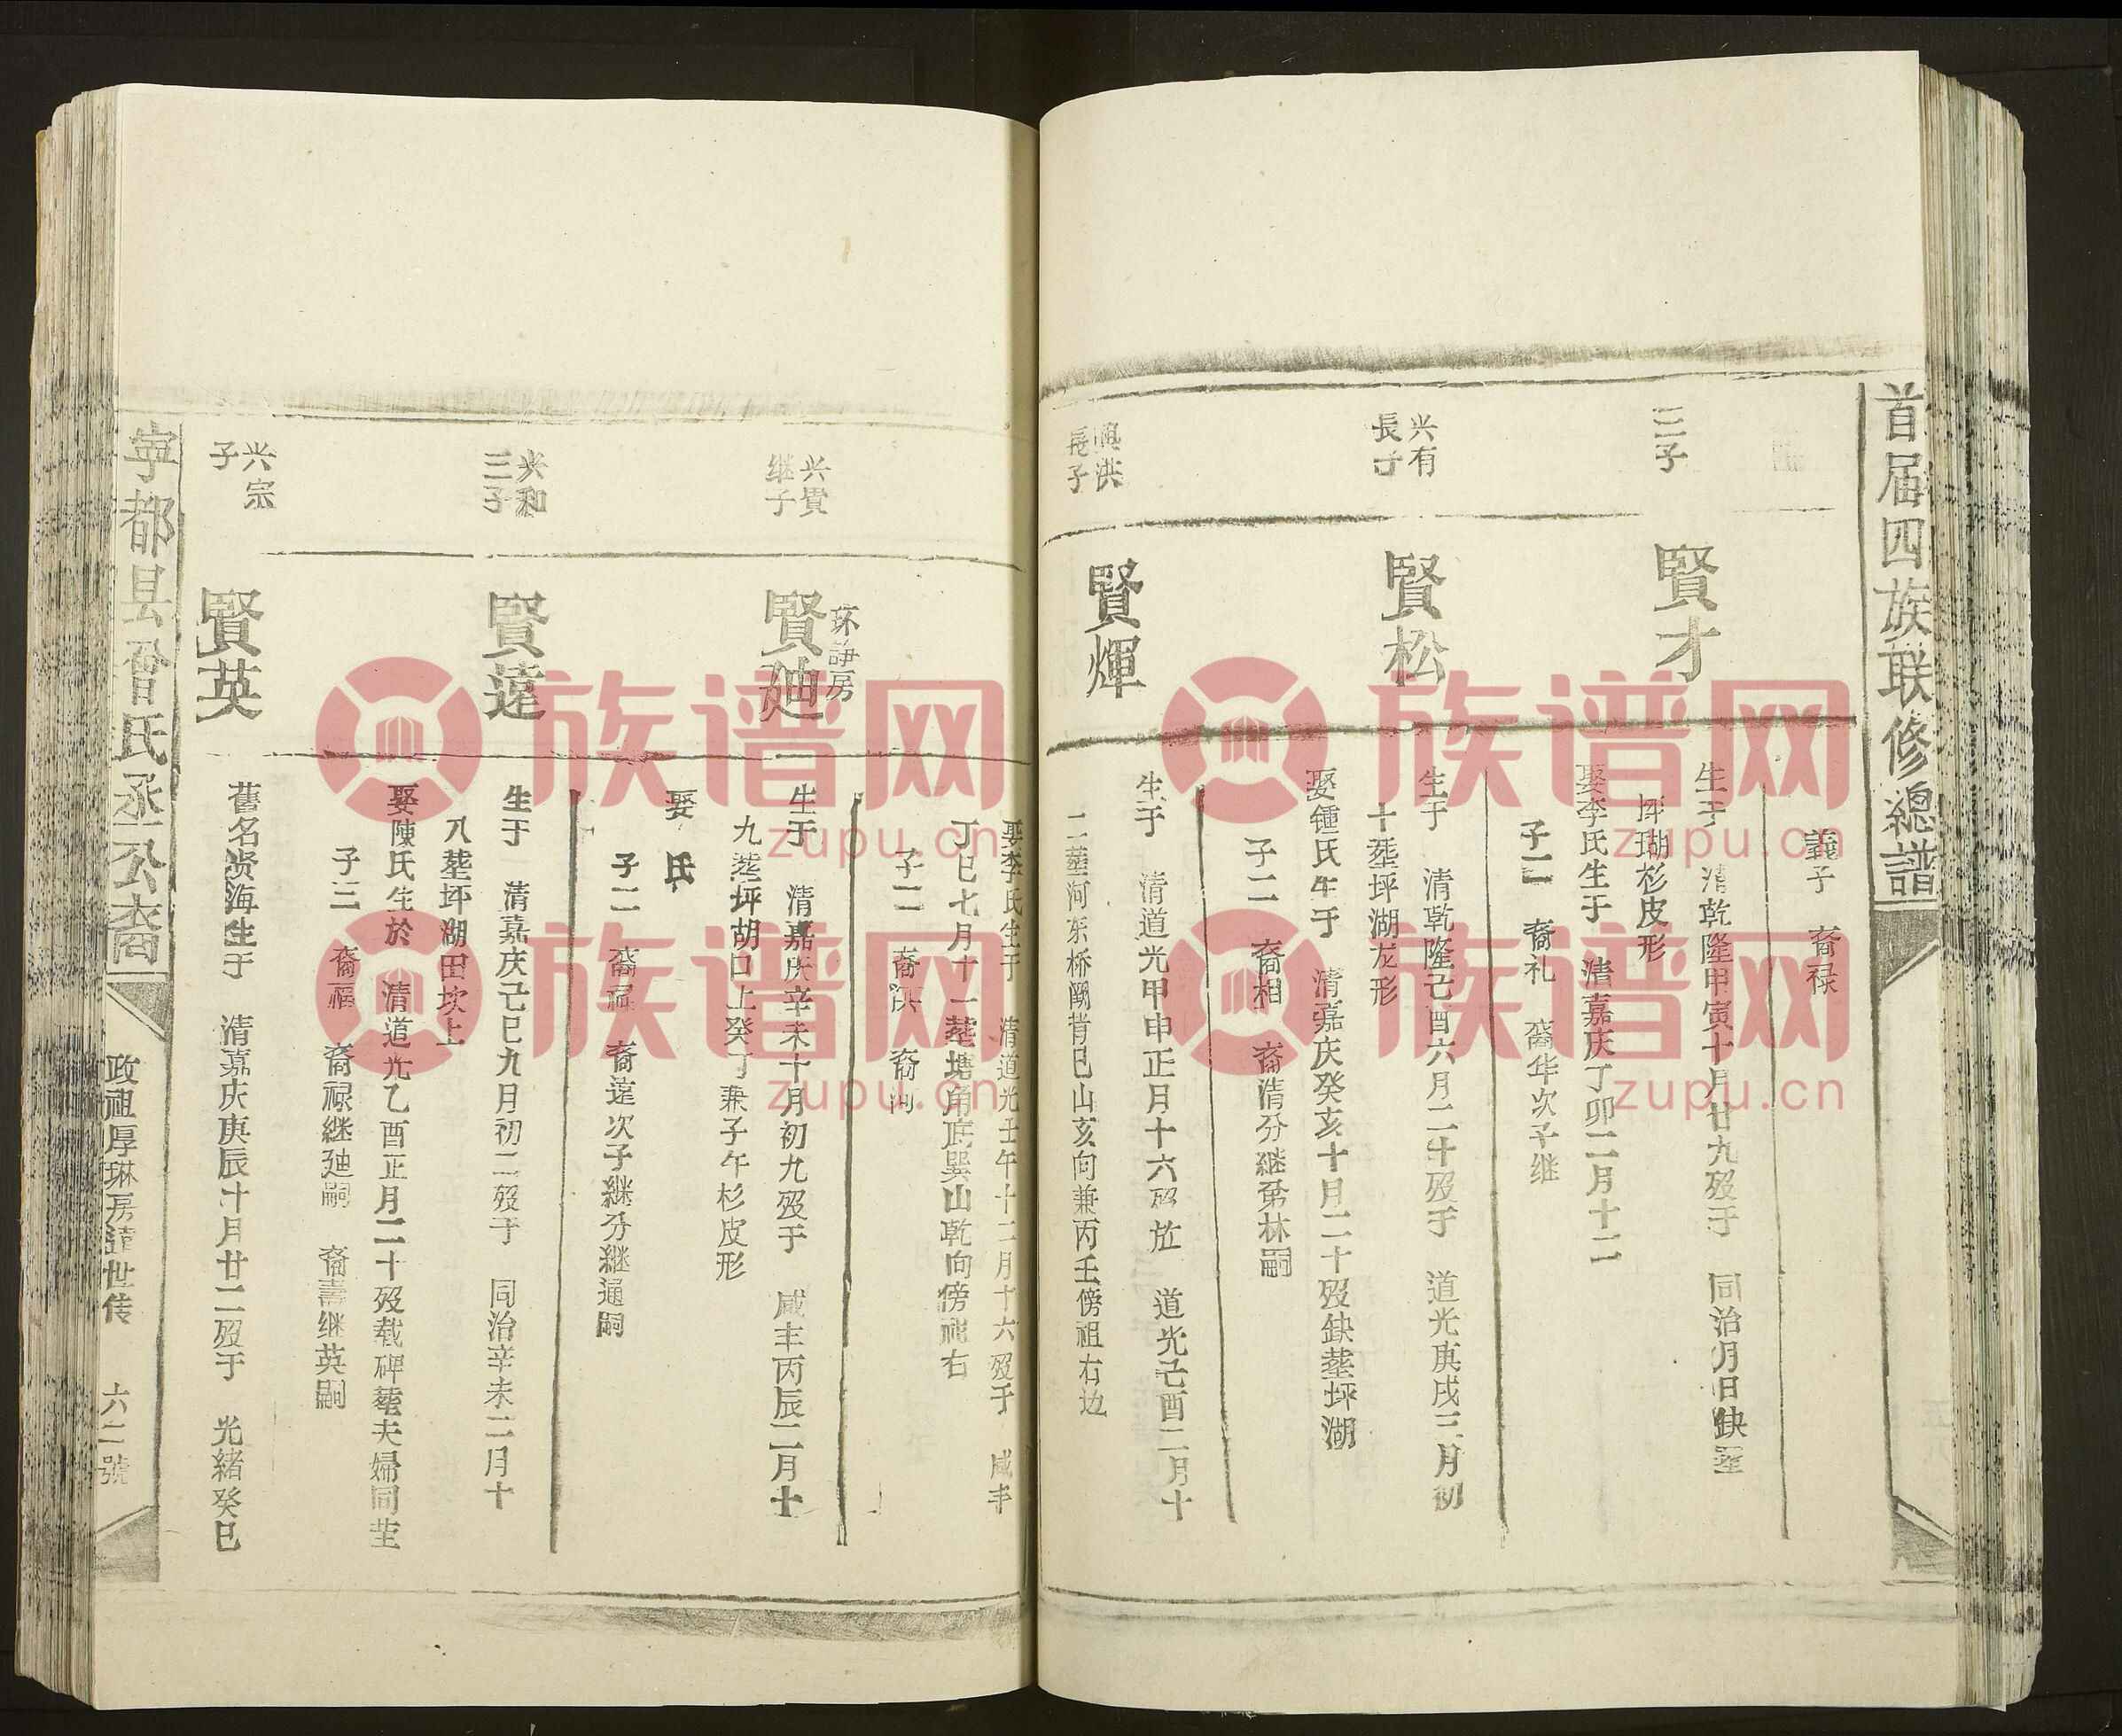 首届四族联修總譜
義子　裔禄
三子
賢才
生于　清乾隆甲寅十月廿九歿于　同治月日缺塟
坪瑚杉皮形
娶李氏生于　清嘉庆丁卯二月十二
子二　裔礼　裔华次子继
兴有
長子
賢松
生于　清乾隆己酉六月二十歿于　道光庚戌三月初
十塟坪湖龙形
娶鍾氏生于　清嘉庆癸亥十月二十歿缺塟坪湖
子二　裔相　裔清分継弟林嗣
興洪
長子
賢煇
生于　清道光甲申正月十六歿　道光己酉二月十
二塟河东桥阙背巳山亥向兼丙壬傍祖右边
娶李氏生于　清道光壬午十二月十六歿于　咸丰
丁巳七月十一塟塘角底巽山乾向傍祖右
子二　裔洪　裔
兴貴
继子
房
賢廸
生于　清嘉庆辛未十月初九歿于　咸丰丙辰二月十
九塟坪胡口上癸丁兼子午杉皮形
娶　氏
子二　裔禄　裔遠次子継分継通嗣
兴和
三子
賢遠
生于　清嘉庆己巳九月初二歿于　同治辛未二月十
八塟坪湖田坎上
娶陳氏生於　清道光乙酉正月二十歿载碑塟夫婦同茔
子三　裔福　裔禄继廸嗣　裔壽继英嗣
兴宗
子
賢英
舊名贤海生于　清嘉庆庚辰十月廿二歿于　光緒癸巳
寕都县曾氏丞公裔
政祖厚琳房達世传　六二號
族谱网
zupu.cn
族谱网
zupu.cn
族谱网
zupu.cn
族谱网
zupu.cn